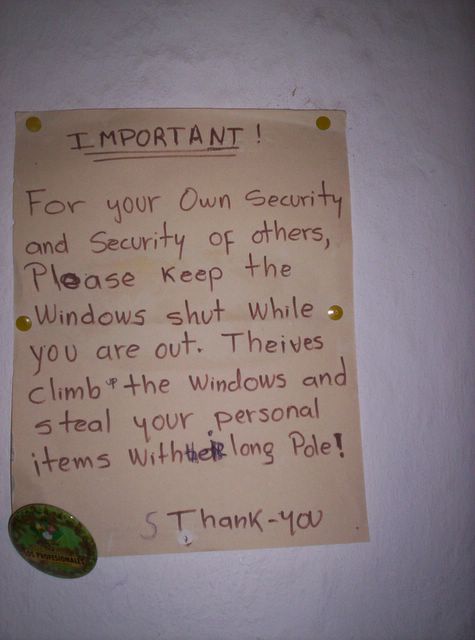 IMPORTANT!
For your Own Security
and Security of others,
Please Keep the
Windows shut While
you are out. Theives
climb up the Windows and
steal your personal
items With their long Pole!
5 Thank-you
OS PROFESIONALES